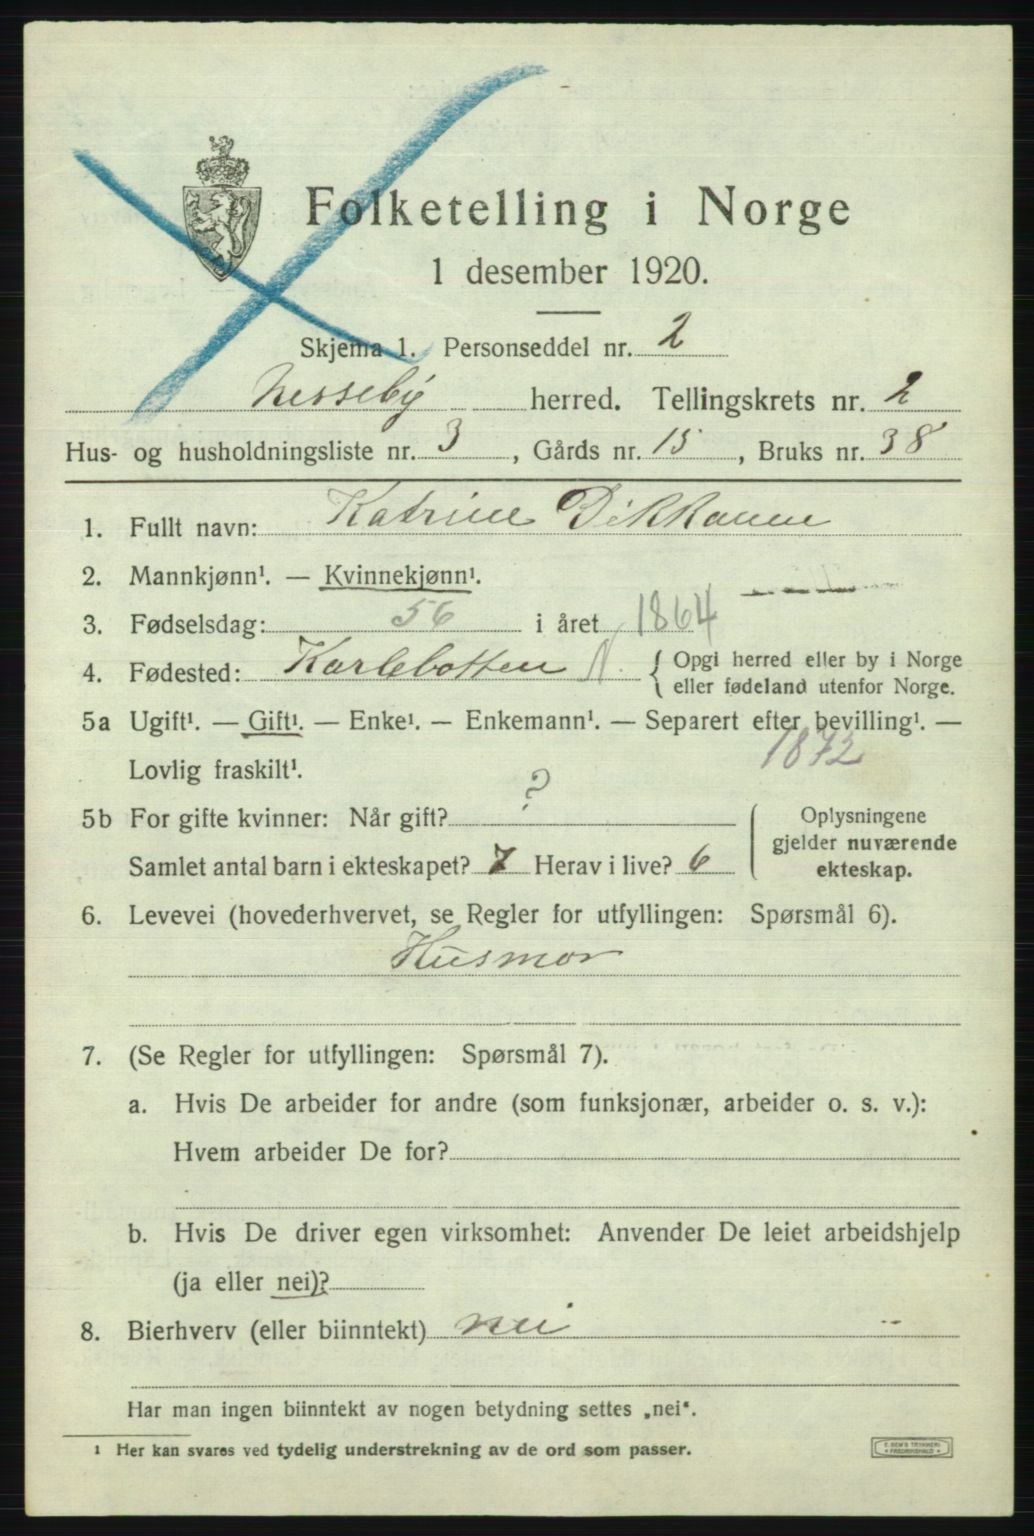 Folketelling i Norge
1 desember 1920.
Skjema 1. Personseddel nr. 2
Nesseby herred. Tellingskrets nr. 2
Hus- og husholdningsliste nr. 3, Gårds nr. 15, Bruks nr. 38
1. Fullt navn: Katrine Bikkanen
2. Mannkjønn¹. — Kvinnekjønn¹.
3. Fødselsdag: 56 i året 1864
4. Fødested: Karlebotten N. { Opgi herred eller by i Norge
eller fødeland utenfor Norge.
5a Ugift¹. — Gift¹. — Enke¹. — Enkemann¹. — Separert efter bevilling¹. —
Lovlig fraskilt¹. 1872
5b For gifte kvinner: Når gift? ?
Samlet antal barn i ekteskapet? 7 Herav i live? 6
Oplysningene
gjelder nuværende
ekteskap.
6. Levevei (hovederhvervet, se Regler for utfyllingen: Spørsmål 6).
Husmor
7. (Se Regler for utfyllingen: Spørsmål 7).
a. Hvis De arbeider for andre (som funksjonær, arbeider o. s. v.):
Hvem arbeider De for?
b. Hvis De driver egen virksomhet: Anvender De leiet arbeidshjelp
(ja eller nei)?
8. Bierhverv (eller biinntekt) nei
Har man ingen biinntekt av nogen betydning settes „nei".
¹ Her kan svares ved tydelig understrekning av de ord som passer.
E. SEM'S TRYKKERI
FREDRIKSHALD